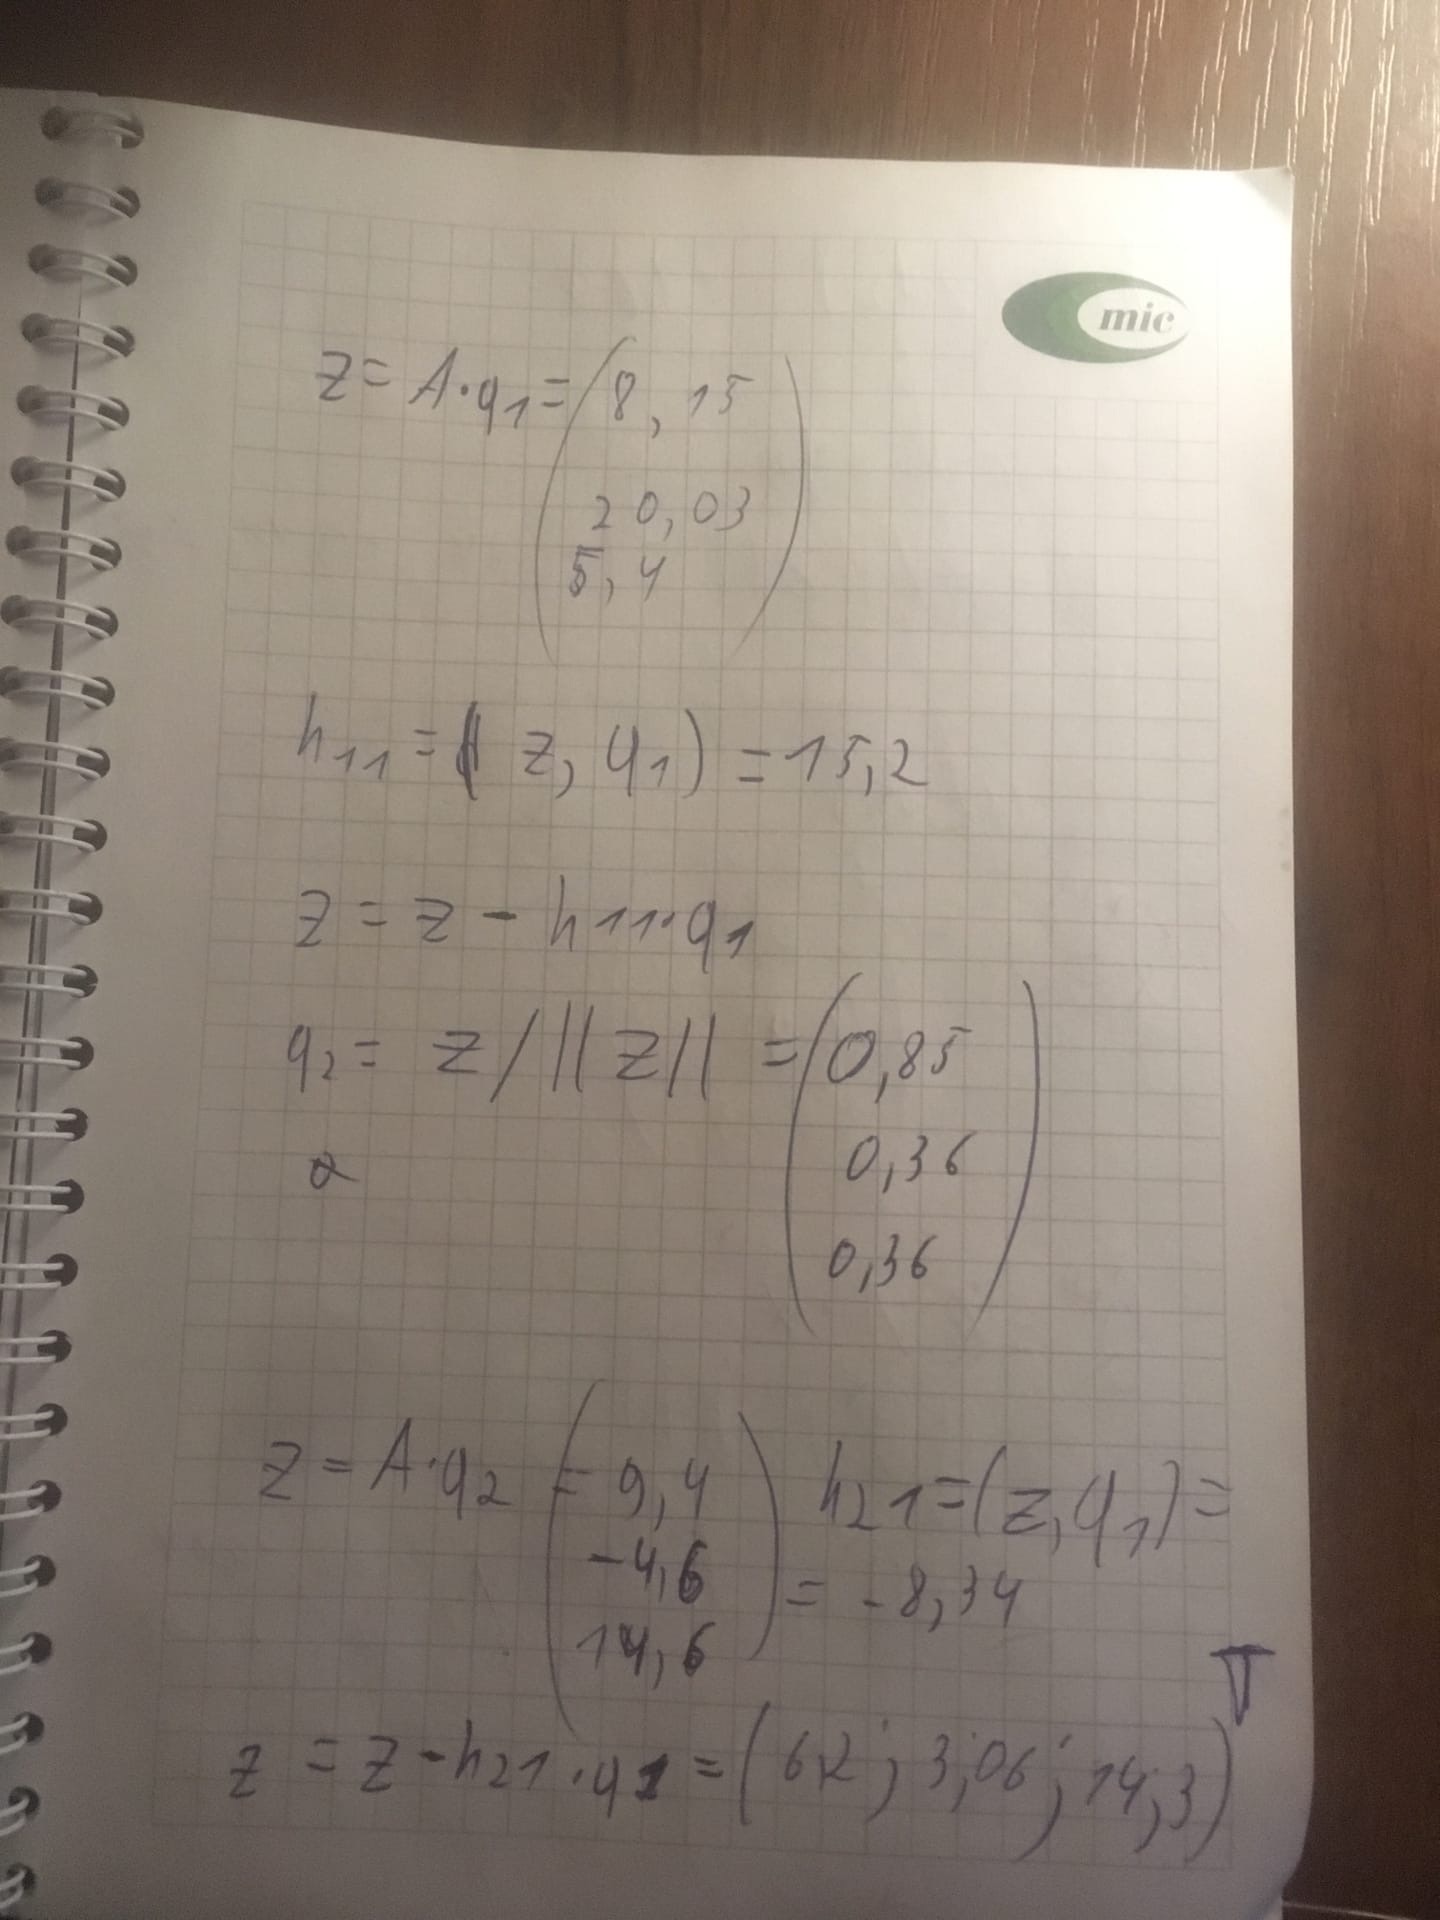 mic
z = A·q1 = (8,15
20,03
5,4)
h11 = (z, q1) = 15,2
z = z - h11·q1
q2 = z/||z|| = (0,85
0,36
0,36)
z = A·q2 = (9,4
-4,6
14,6)
h21 = (z, q1) =
= -8,34
z = z - h21·q1 = (6,2; 3,06; 14,3)ᵀ